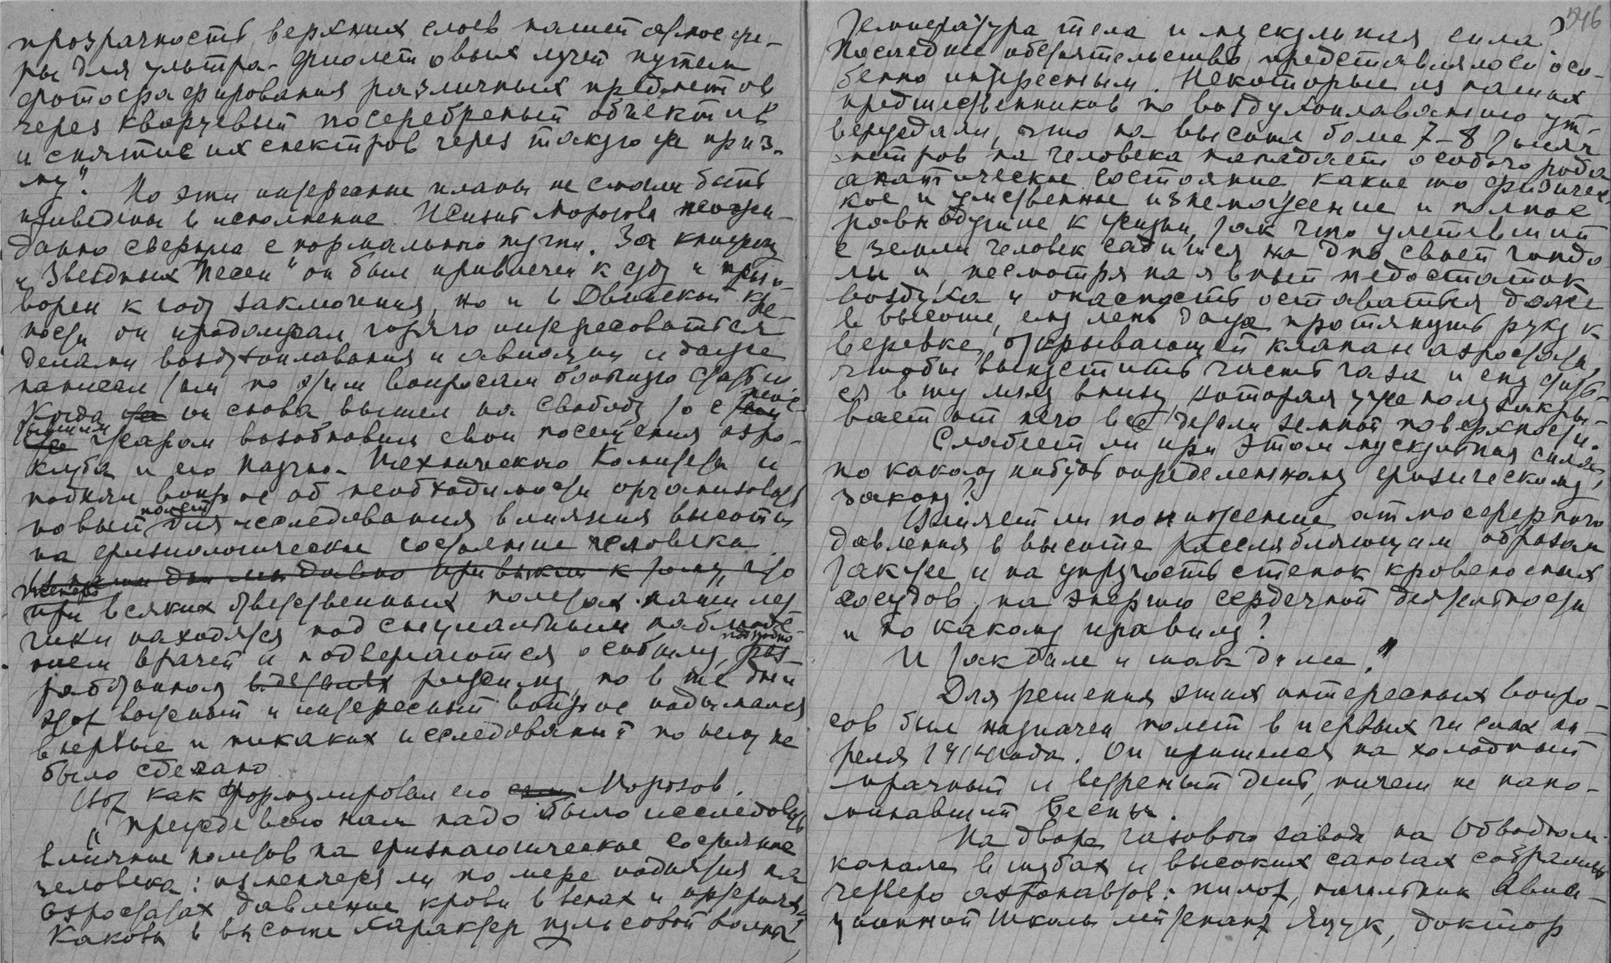 прозрачность верхних слоев нашей атмосфе-
ры для ультра-фиолетовых лучей путем
фотографирования различных предметов
через кварцевый посеребреный объектив
и снятие их спектров через такую же приз-
му".
Но эти интересные планы не смогли быть
приведены в исполнение. Жизнь Морозова неожи-
данно свернула с нормального пути. За книгу
"Звездных Песен" он был привлечен к суду и приго-
ворен к году заключения, но и в Двинской кре-
пости он продолжал горячо интересоваться
делами воздухоплавания и авиации и даже
написал там по этим вопросам большую статью.
Когда он снова вышел на свободу то с
жаром возобновил свои посещения аэро-
клуба и его Научно-Технического Комитета и
поднял вопрос об необходимости организовать
новый полет для исследования влияния высоты
на физиологическое состояние человека.
Теперь мы давно привыкли к тому, что
при всяких ответственных полетах наши лет-
чики находятся под специальным наблюде-
нием врачей и подвергаются особому, подробно раз-
работанному режиму, но в те дни
этот важный и интересный вопрос поднимался
впервые и никаких исследований по нему не
было сделано.
Вот как формулировал его Морозов.
"Прежде всего нам надо было исследовать
влияние полетов на физиологическое состояние
человека: изменяется ли по мере поднятия на
аэростатах давление крови в венах и артериях?
Каков в высоте характер пульсовой волны?
746
температура тела и мускульная сила?
Последнее обстоятельство представлялось осо-
бенно интересным. Некоторые из наших
предшественников по воздухоплаванию ут-
верждали, что на высоте более 7-8 тысяч
метров на человека нападает особого рода
апатическое состояние, какое то физичес-
кое и умственное изнеможение и полное
равнодушие к жизни, так что улетевший
с земли человек садится на дно своей гондо-
лы и, несмотря на явный недостаток
воздуха и опасность оставаться долее
в высоте, ему лень даже протянуть руку к
веревке, открывающей клапан аэростата,
чтобы выпустить часть газа и спуститься
в ту мглу внизу которая уже полузакры-
вает от него все детали земной поверхности.
Слабеет ли при этом мускульная сила
по какому нибудь определенному физическому
закону?
Влияет ли понижение атмосферного
давления в высоте расслабляющим образом
также и на упругость стенок кровеносных
сосудов, на энергию сердечной деятельности
и по какому правилу?
И так далее и так далее."
Для решения этих интересных вопро-
сов был назначен полет в первых числах ап-
реля 1914 года. Он пришелся на холодный
мрачный и ветреный день, ничем не напо-
минавший весны.
На дворе газового завода на Обводном
канале в шубах и высоких сапогах собрались
четверо аэронавтов: пилот, начальник Авиа-
ционной школы лейтенант Яцук, доктор